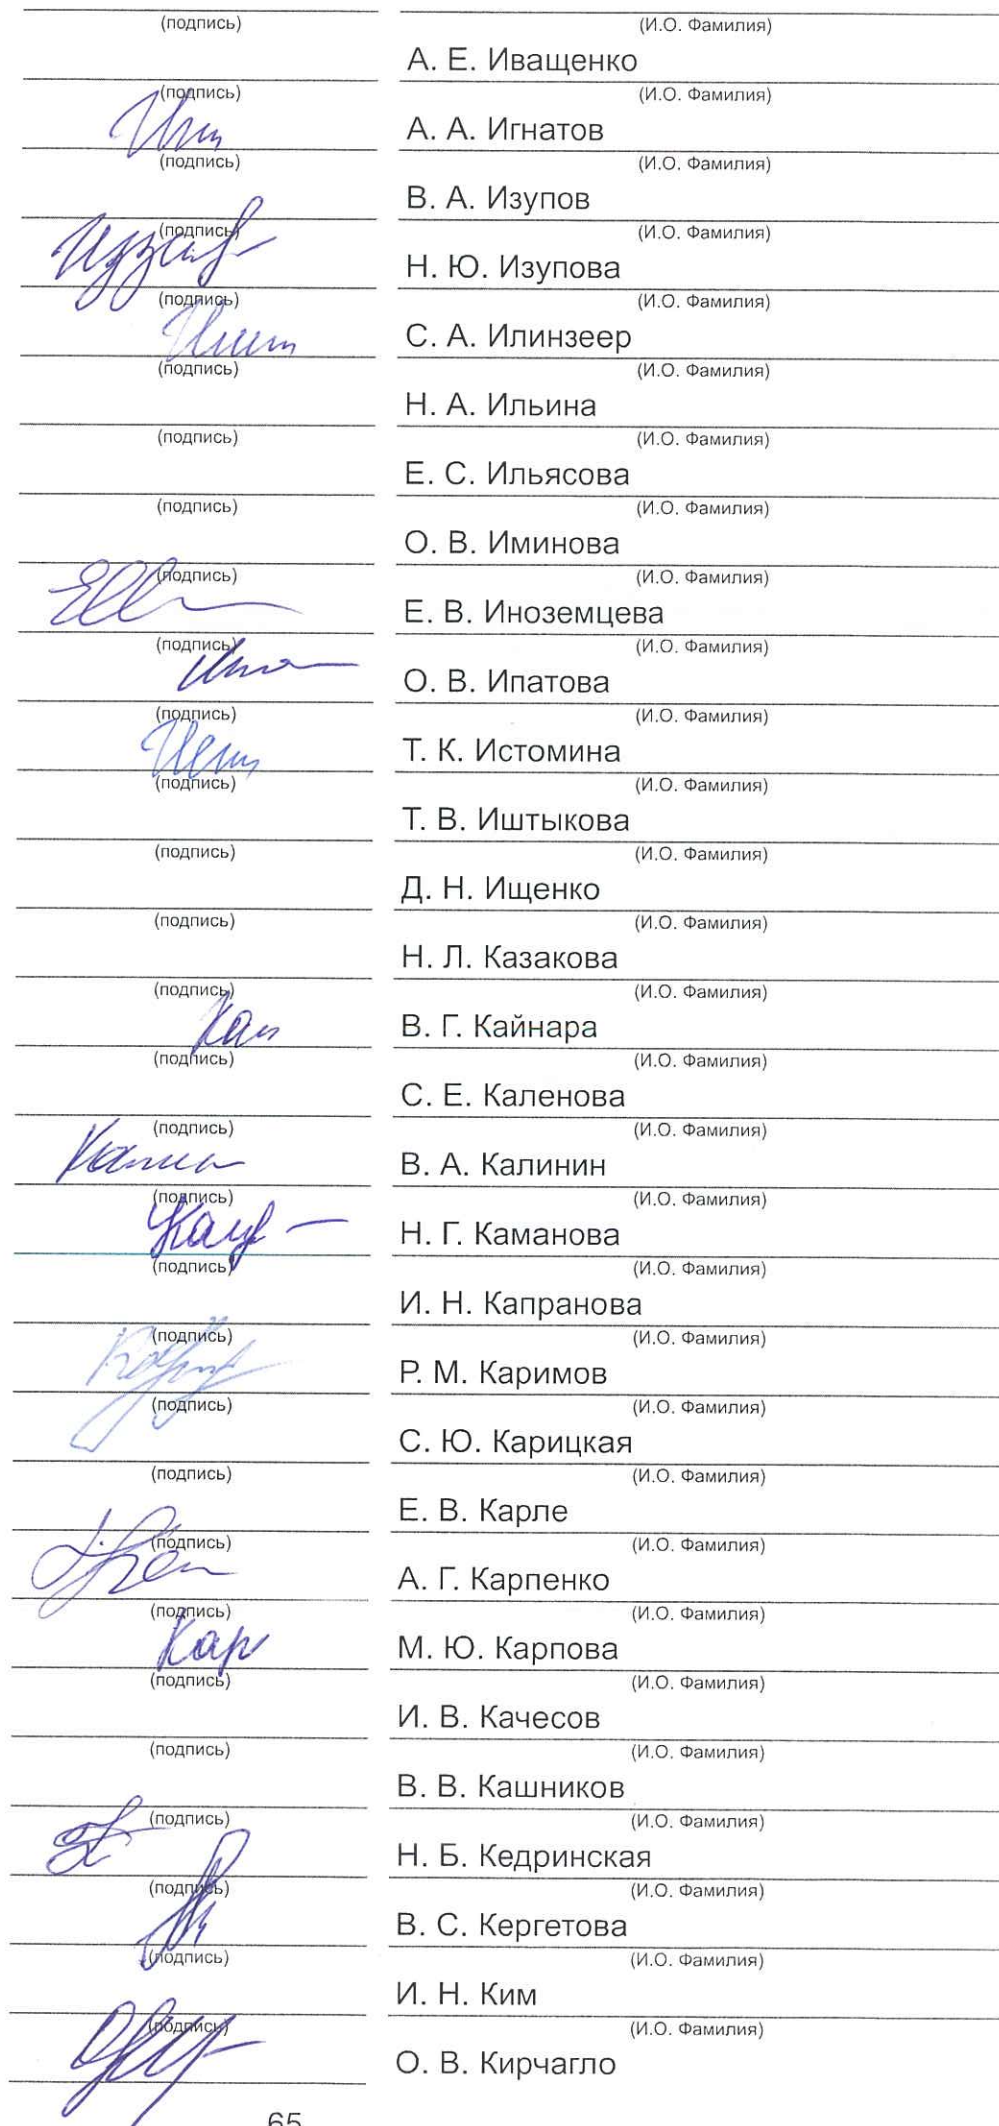 (подпись) (И.О. Фамилия)
А. Е. Иващенко
(подпись) (И.О. Фамилия)
А. А. Игнатов
(подпись) (И.О. Фамилия)
В. А. Изупов
(подпись) (И.О. Фамилия)
Н. Ю. Изупова
(подпись) (И.О. Фамилия)
С. А. Илинзеер
(подпись) (И.О. Фамилия)
Н. А. Ильина
(подпись) (И.О. Фамилия)
Е. С. Ильясова
(подпись) (И.О. Фамилия)
О. В. Иминова
(подпись) (И.О. Фамилия)
Е. В. Иноземцева
(подпись) (И.О. Фамилия)
О. В. Ипатова
(подпись) (И.О. Фамилия)
Т. К. Истомина
(подпись) (И.О. Фамилия)
Т. В. Иштыкова
(подпись) (И.О. Фамилия)
Д. Н. Ищенко
(подпись) (И.О. Фамилия)
Н. Л. Казакова
(подпись) (И.О. Фамилия)
В. Г. Кайнара
(подпись) (И.О. Фамилия)
С. Е. Каленова
(подпись) (И.О. Фамилия)
В. А. Калинин
(подпись) (И.О. Фамилия)
Н. Г. Каманова
(подпись) (И.О. Фамилия)
И. Н. Капранова
(подпись) (И.О. Фамилия)
Р. М. Каримов
(подпись) (И.О. Фамилия)
С. Ю. Карицкая
(подпись) (И.О. Фамилия)
Е. В. Карле
(подпись) (И.О. Фамилия)
А. Г. Карпенко
(подпись) (И.О. Фамилия)
Кар М. Ю. Карпова
(подпись) (И.О. Фамилия)
И. В. Качесов
(подпись) (И.О. Фамилия)
В. В. Кашников
(подпись) (И.О. Фамилия)
Н. Б. Кедринская
(подпись) (И.О. Фамилия)
В. С. Кергетова
(подпись) (И.О. Фамилия)
И. Н. Ким
(подпись) (И.О. Фамилия)
О. В. Кирчагло
65